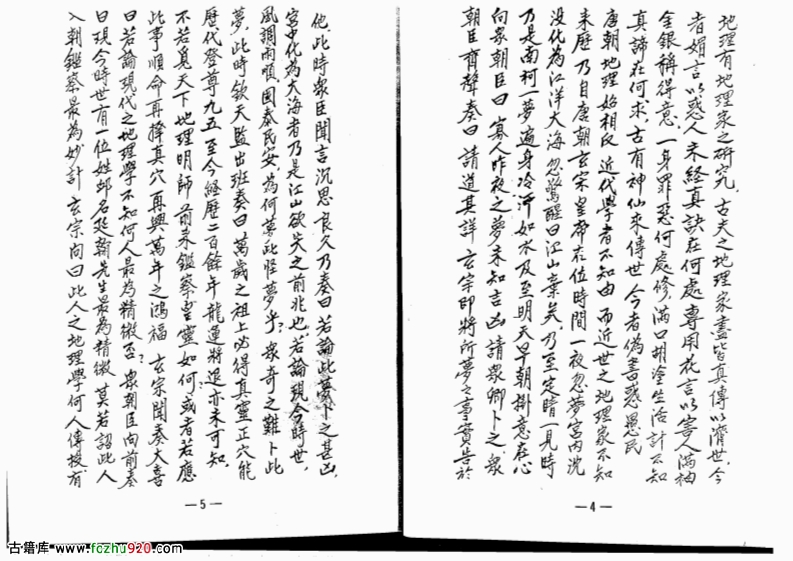 地理有地理家之研究古夫之地理家盡皆真傳以濟世今
者媚言以惑人未經真訣在何處專用花言以害人滿袖
金銀稱得意一身罪惡何處修滿口胡塗生活計不知
真諦在何求古有神仙來傳世今者偽書惑愚民
唐朝地理始相反近代學者不知由而近世之地理家不知
來歷乃自唐朝玄宗皇帝在位時間一夜忽夢宮內沈
沒化為江洋大海忽驚醒曰江山棄矣乃至定睛一見時
乃是南柯一夢遍身冷汗如水及至明天早朝掛意在心
向眾朝臣曰寡人昨夜之夢未知吉凶請眾卿卜之眾
朝臣齊聲奏曰請道其詳玄宗即將所夢之事實告於
—4—
他此時眾臣聞言沉思良久乃奏曰若論此夢卜之甚凶
宮中化為大海者乃是江山欲失之前兆也若論現今時世
風調雨順國泰民安為何夢此怪夢乎眾奇之難卜此
夢此時欽天監出班奏曰萬歲之祖上必得真靈正穴能
歷代登尊九五至今經歷二百餘年龍運將退亦未可知
不若覓天下地理明師前來鑑察皇靈如何或者若應
此事順命再擇真穴再興萬年之鴻福玄宗聞奏大喜
曰若論現代之地理學不知何人最為精微否眾朝臣向前奏
曰現今時世有一位姓邱名延翰先生最為精微莫若詔此人
入朝鑑察最為妙計玄宗向曰此人之地理學何人傳授有
—5—
古籍库 www.fczhu920.com